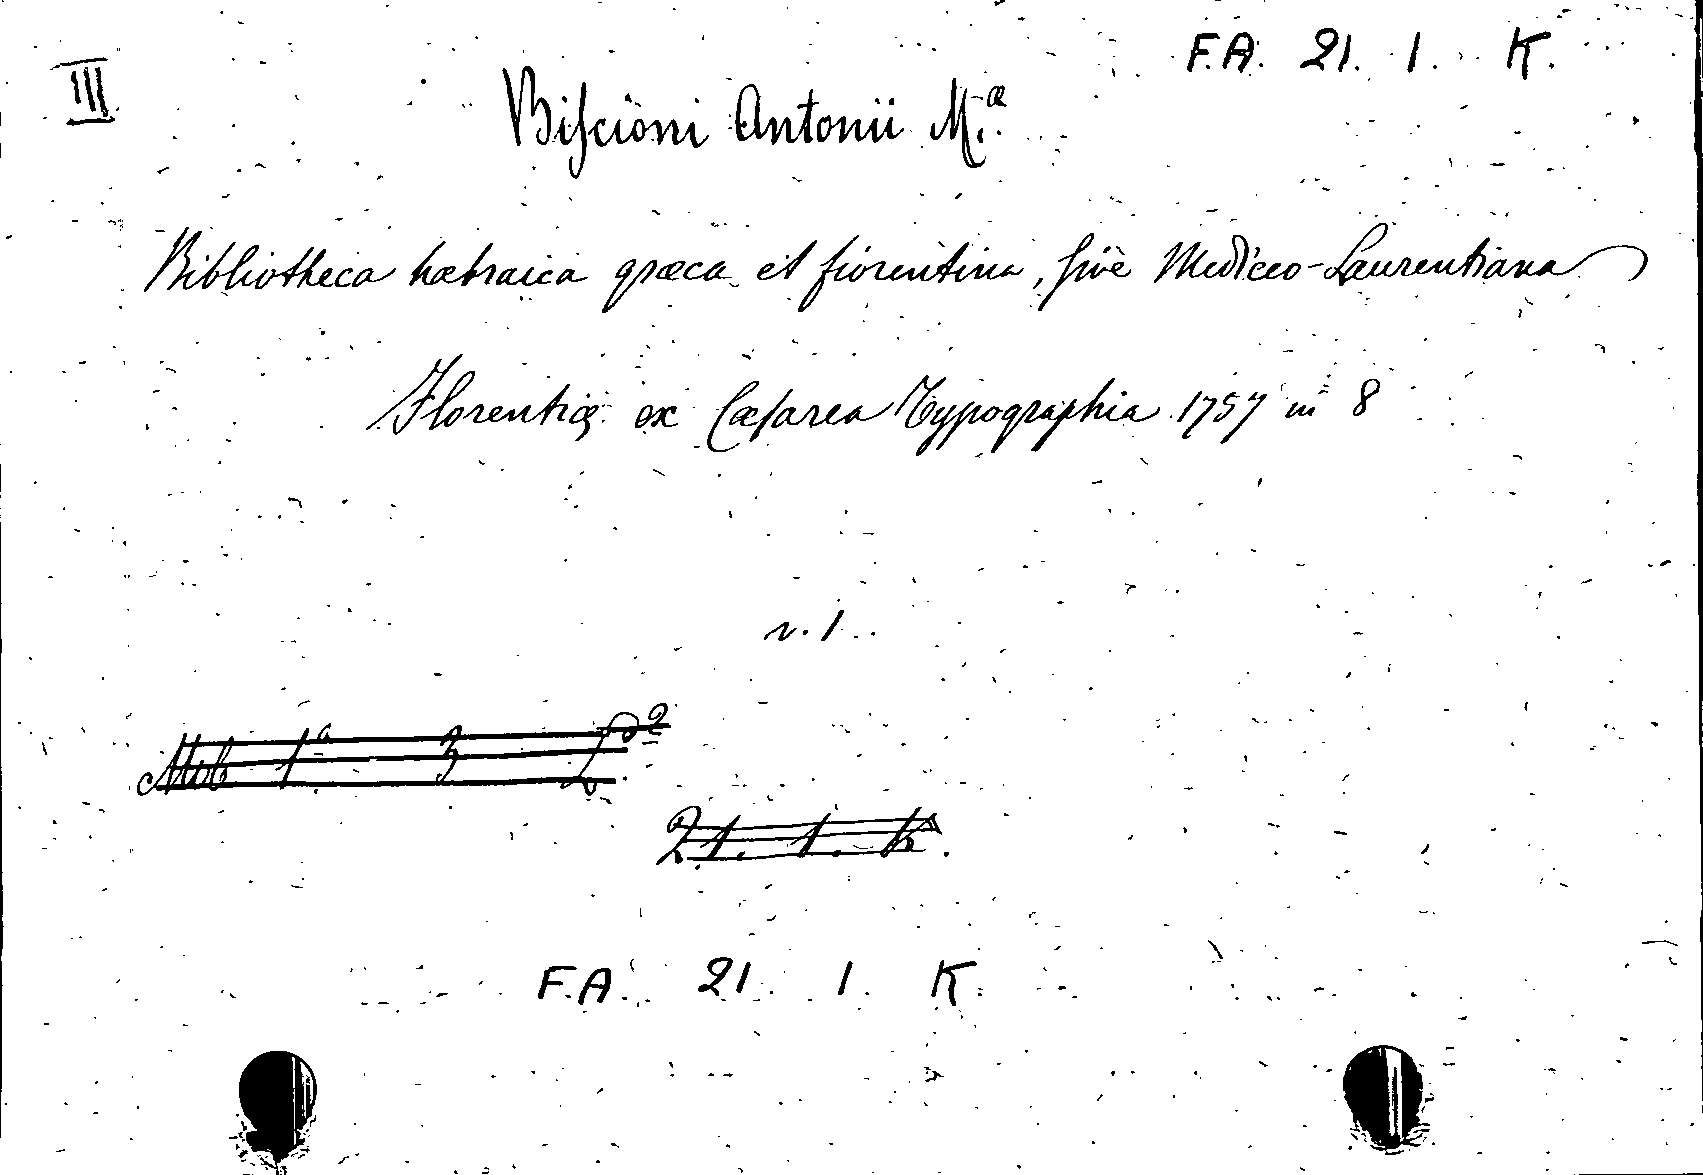 F.A. 21. 1. K.
III
Biscioni Antonii M.ª
Bibliotheca hæbraica græca et fiorentina, sive Mediceo-Laurentiana
Florentiæ ex Cæsarea Typographia 1757 in 8
v. 1.
Mob 1ª 3
21. 1. K.
F.A. 21 1. K.